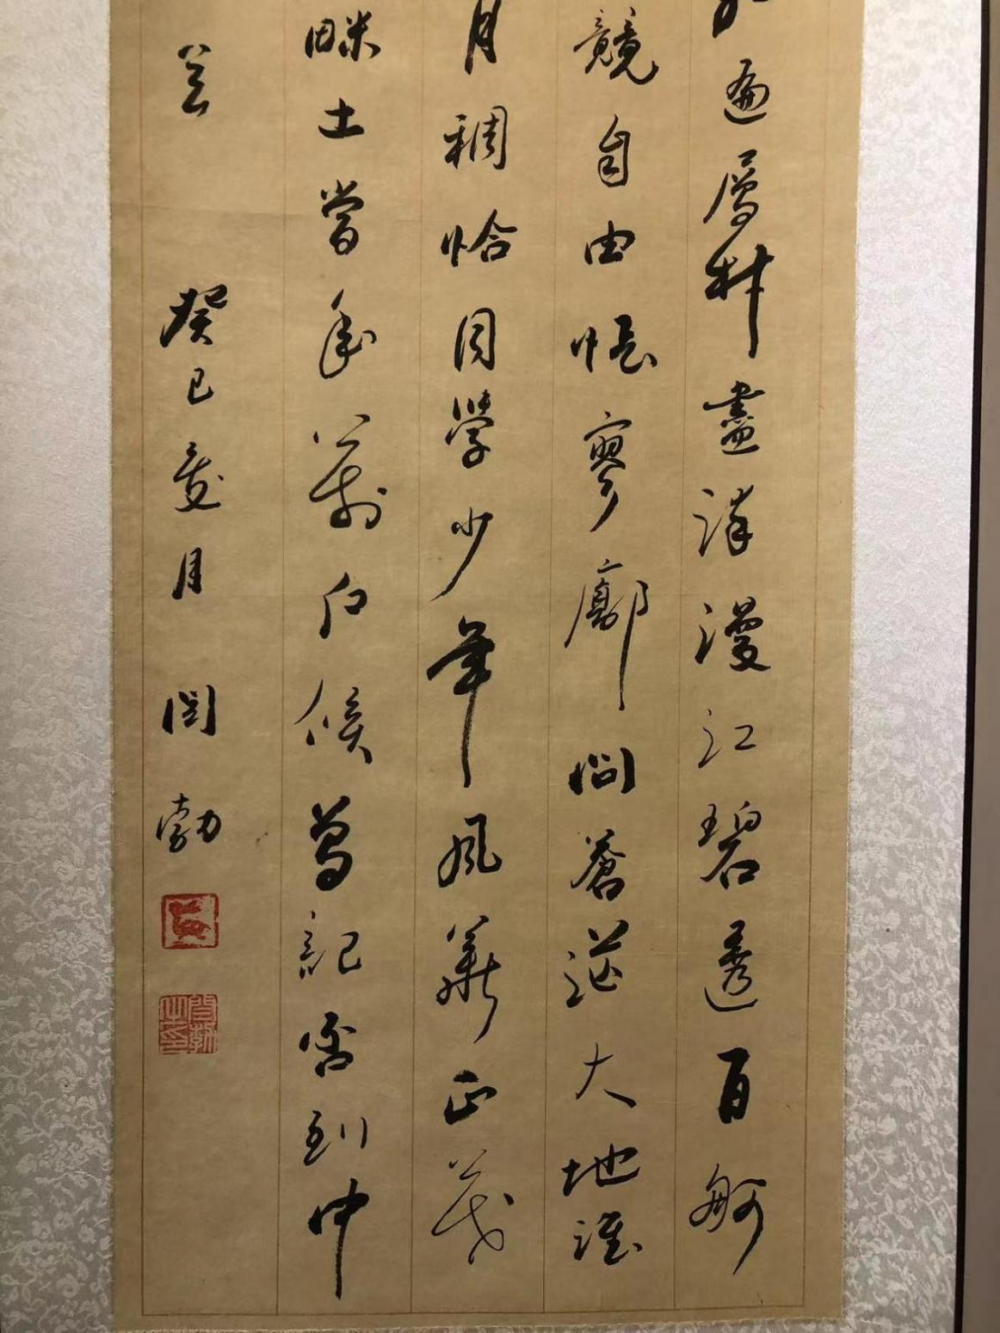 遍層林盡染漫江碧透百舸
競自由悵寥廓問蒼茫大地誰
月稠恰同學少年風華正茂
土當年萬户侯曾記否到中
癸巳夏月 閆勃
閆勃之印